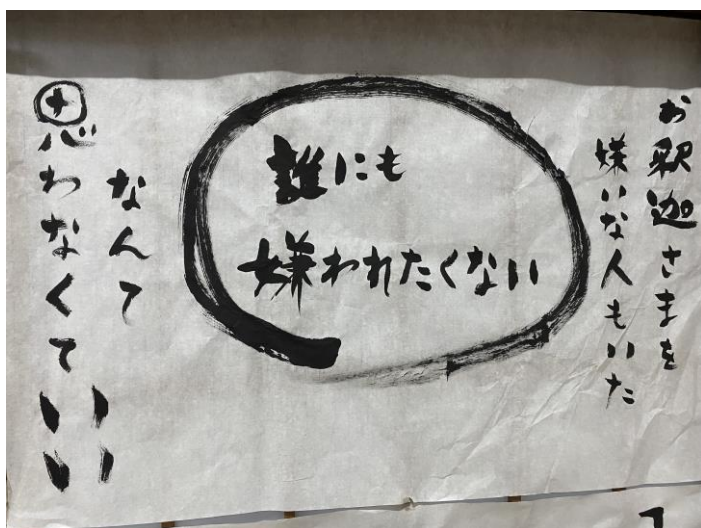 お釈迦さまを
嫌いな人もいた
誰にも
嫌われたくない
なんて
思わなくていい